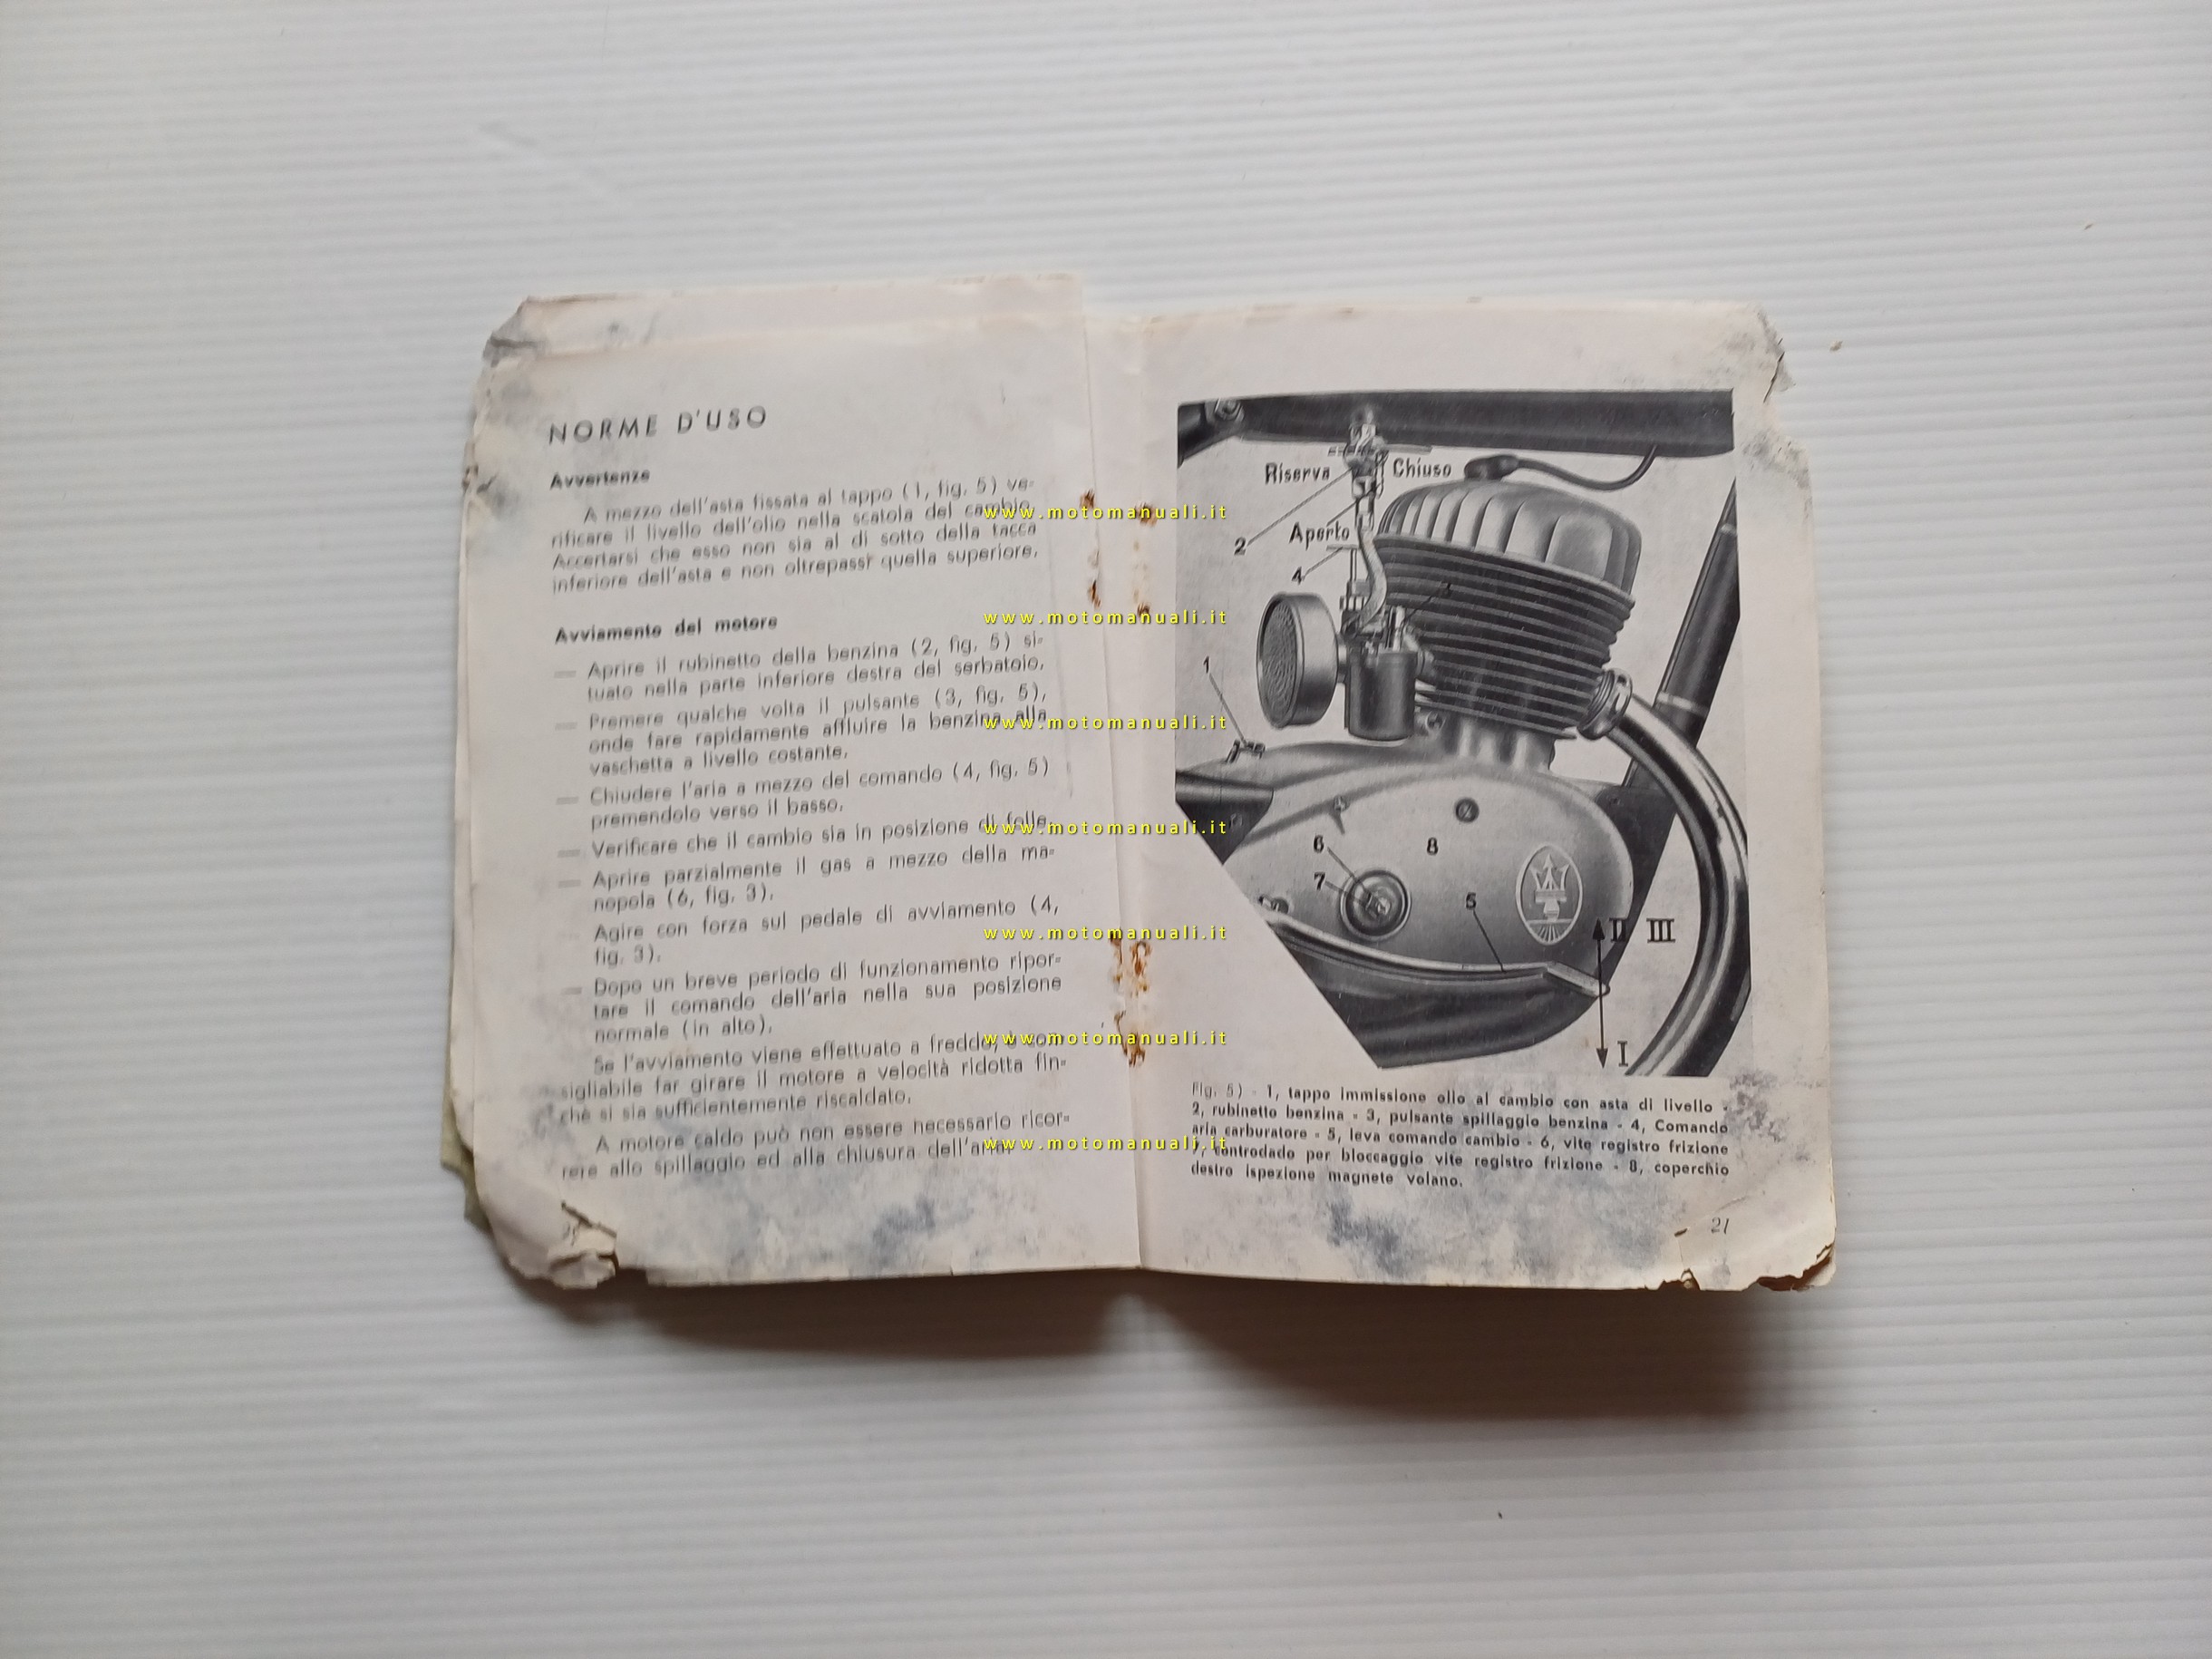 NORME D'USO
Avvertenze
A mezzo dell'asta fissata al tappo (1, fig. 5) ve-
rificare il livello dell'olio nella scatola del cambio.
Accertarsi che esso non sia al di sotto della tacca
inferiore dell'asta e non oltrepassi quella superiore.
Avviamento del motore
— Aprire il rubinetto della benzina (2, fig. 5) si-
tuato nella parte inferiore destra del serbatoio.
— Premere qualche volta il pulsante (3, fig. 5),
onde fare rapidamente affluire la benzina alla
vaschetta a livello costante.
— Chiudere l'aria a mezzo del comando (4, fig. 5)
premendolo verso il basso.
— Verificare che il cambio sia in posizione di folle.
— Aprire parzialmente il gas a mezzo della ma-
nopola (6, fig. 3).
Agire con forza sul pedale di avviamento (4,
fig. 3).
— Dopo un breve periodo di funzionamento ripor-
tare il comando dell'aria nella sua posizione
normale (in alto).
Se l'avviamento viene effettuato a freddo, è con-
sigliabile far girare il motore a velocità ridotta fin-
chè si sia sufficientemente riscaldato.
A motore caldo può non essere necessario ricor-
rere allo spillaggio ed alla chiusura dell'aria.
www.motomanuali.it
www.motomanuali.it
www.motomanuali.it
www.motomanuali.it
www.motomanuali.it
www.motomanuali.it
www.motomanuali.it
Riserva
Chiuso
Aperto
2
4
3
1
6
8
7
5
II III
I
Fig. 5) - 1, tappo immissione olio al cambio con asta di livello -
2, rubinetto benzina - 3, pulsante spillaggio benzina - 4, Comando
aria carburatore - 5, leva comando cambio - 6, vite registro frizione
7, controdado per bloccaggio vite registro frizione - 8, coperchio
destro ispezione magnete volano.
21